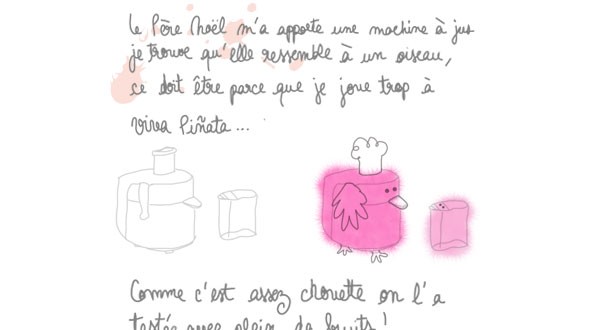 Le Père Noël m'a apporté une machine à jus
je trouve qu'elle ressemble à un oiseau,
ce doit être parce que je joue trop à
viva Piñata...
Comme c'est assez chouette on l'a
testée avec plein de fruits!